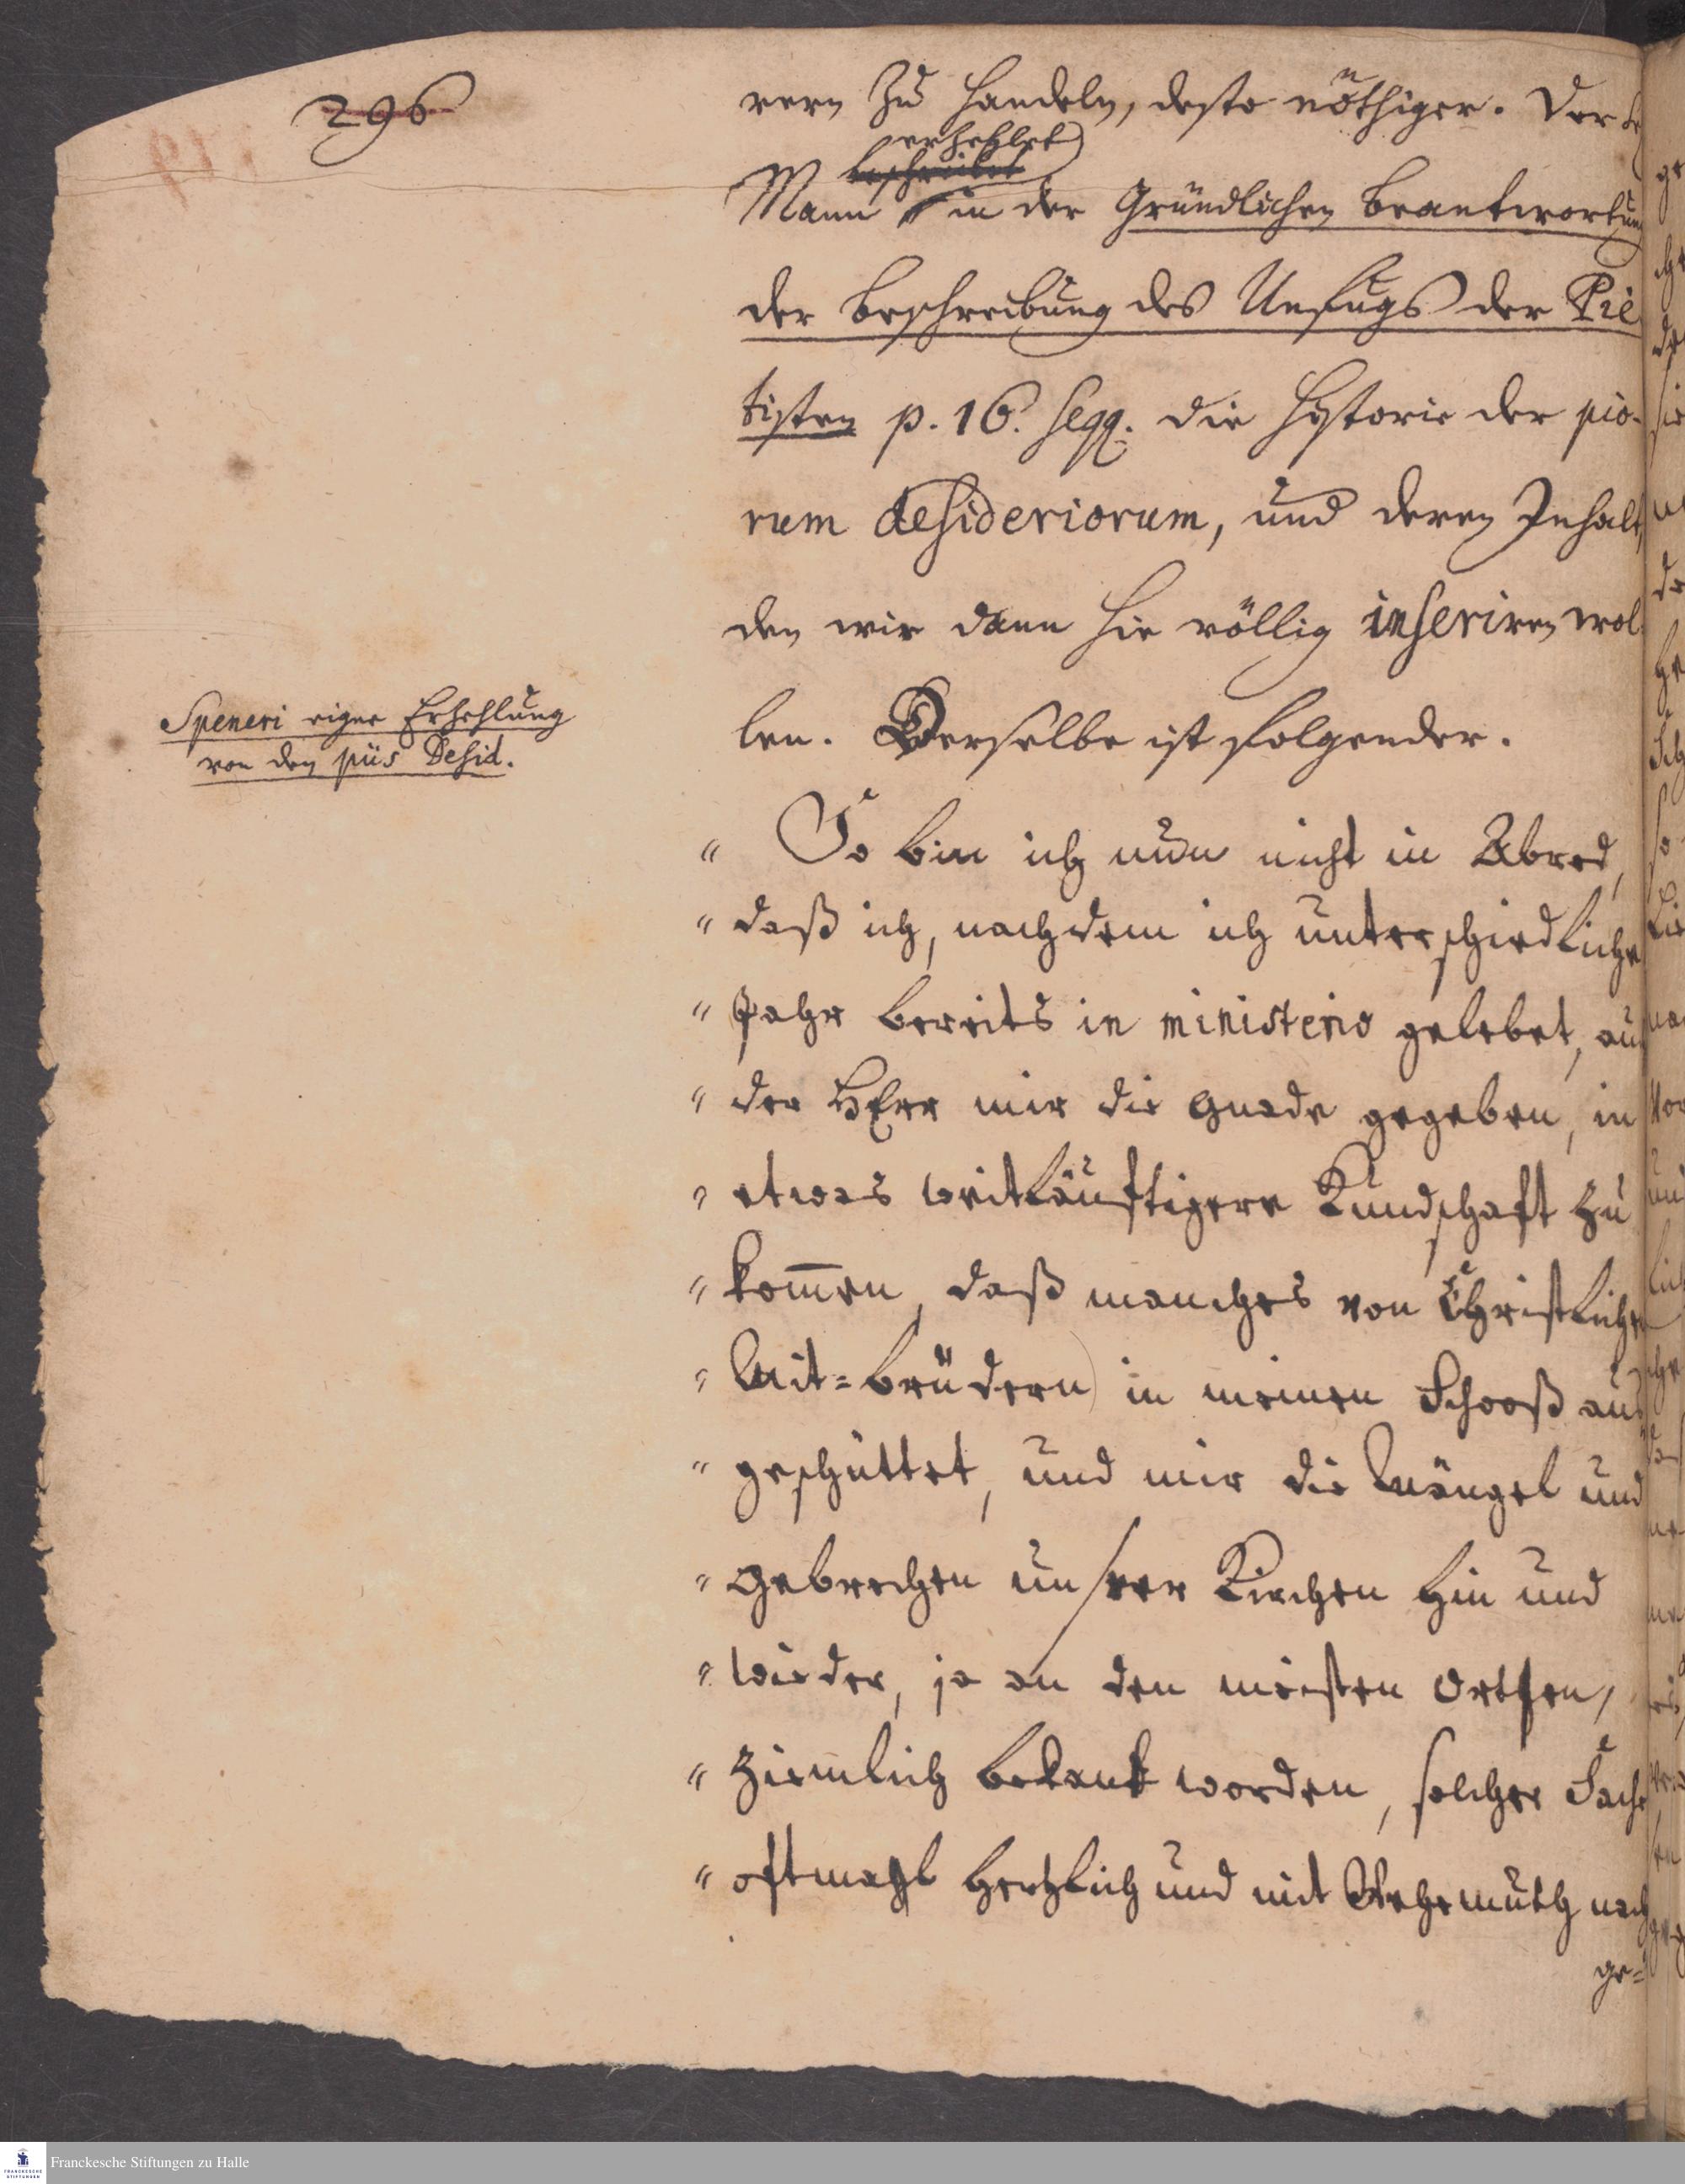 296
rern zu handeln, desto nöthiger. Der
erzehlet
Mann beschreibet in der Gründlichen Beantwortung
der Beschreibung des Unfugs der Pie
tisten p. 16. seqq. die Historie der pio-
rum desideriorum, und deren Inhalt,
den wir dann hie völlig inseriren wol
len. Derselbe ist folgender.
Speneri eigne Erzehlung
von den piis Desid.
" So bin ich nun nicht in Abred,
" daß ich, nachdem ich unterschiedliche
" Jahr bereits in ministerio gelebet, auch
" der HErr mir die Gnade gegeben, in
" etwas weitläuftigere Kundschaft zu
" kom̅en, daß manches von Christlichen
" Mit-Brüdern in meinen Schooß aus
" geschüttet, und mir die Mängel und
" Gebrechen unserer Kirchen hin und
" wieder, ja an den meisten Orthen,
" ziemlich bekant worden, solcher Sache
" oftmahl hertzlich und mit Wehemuth nach
ge-
Franckesche Stiftungen zu Halle